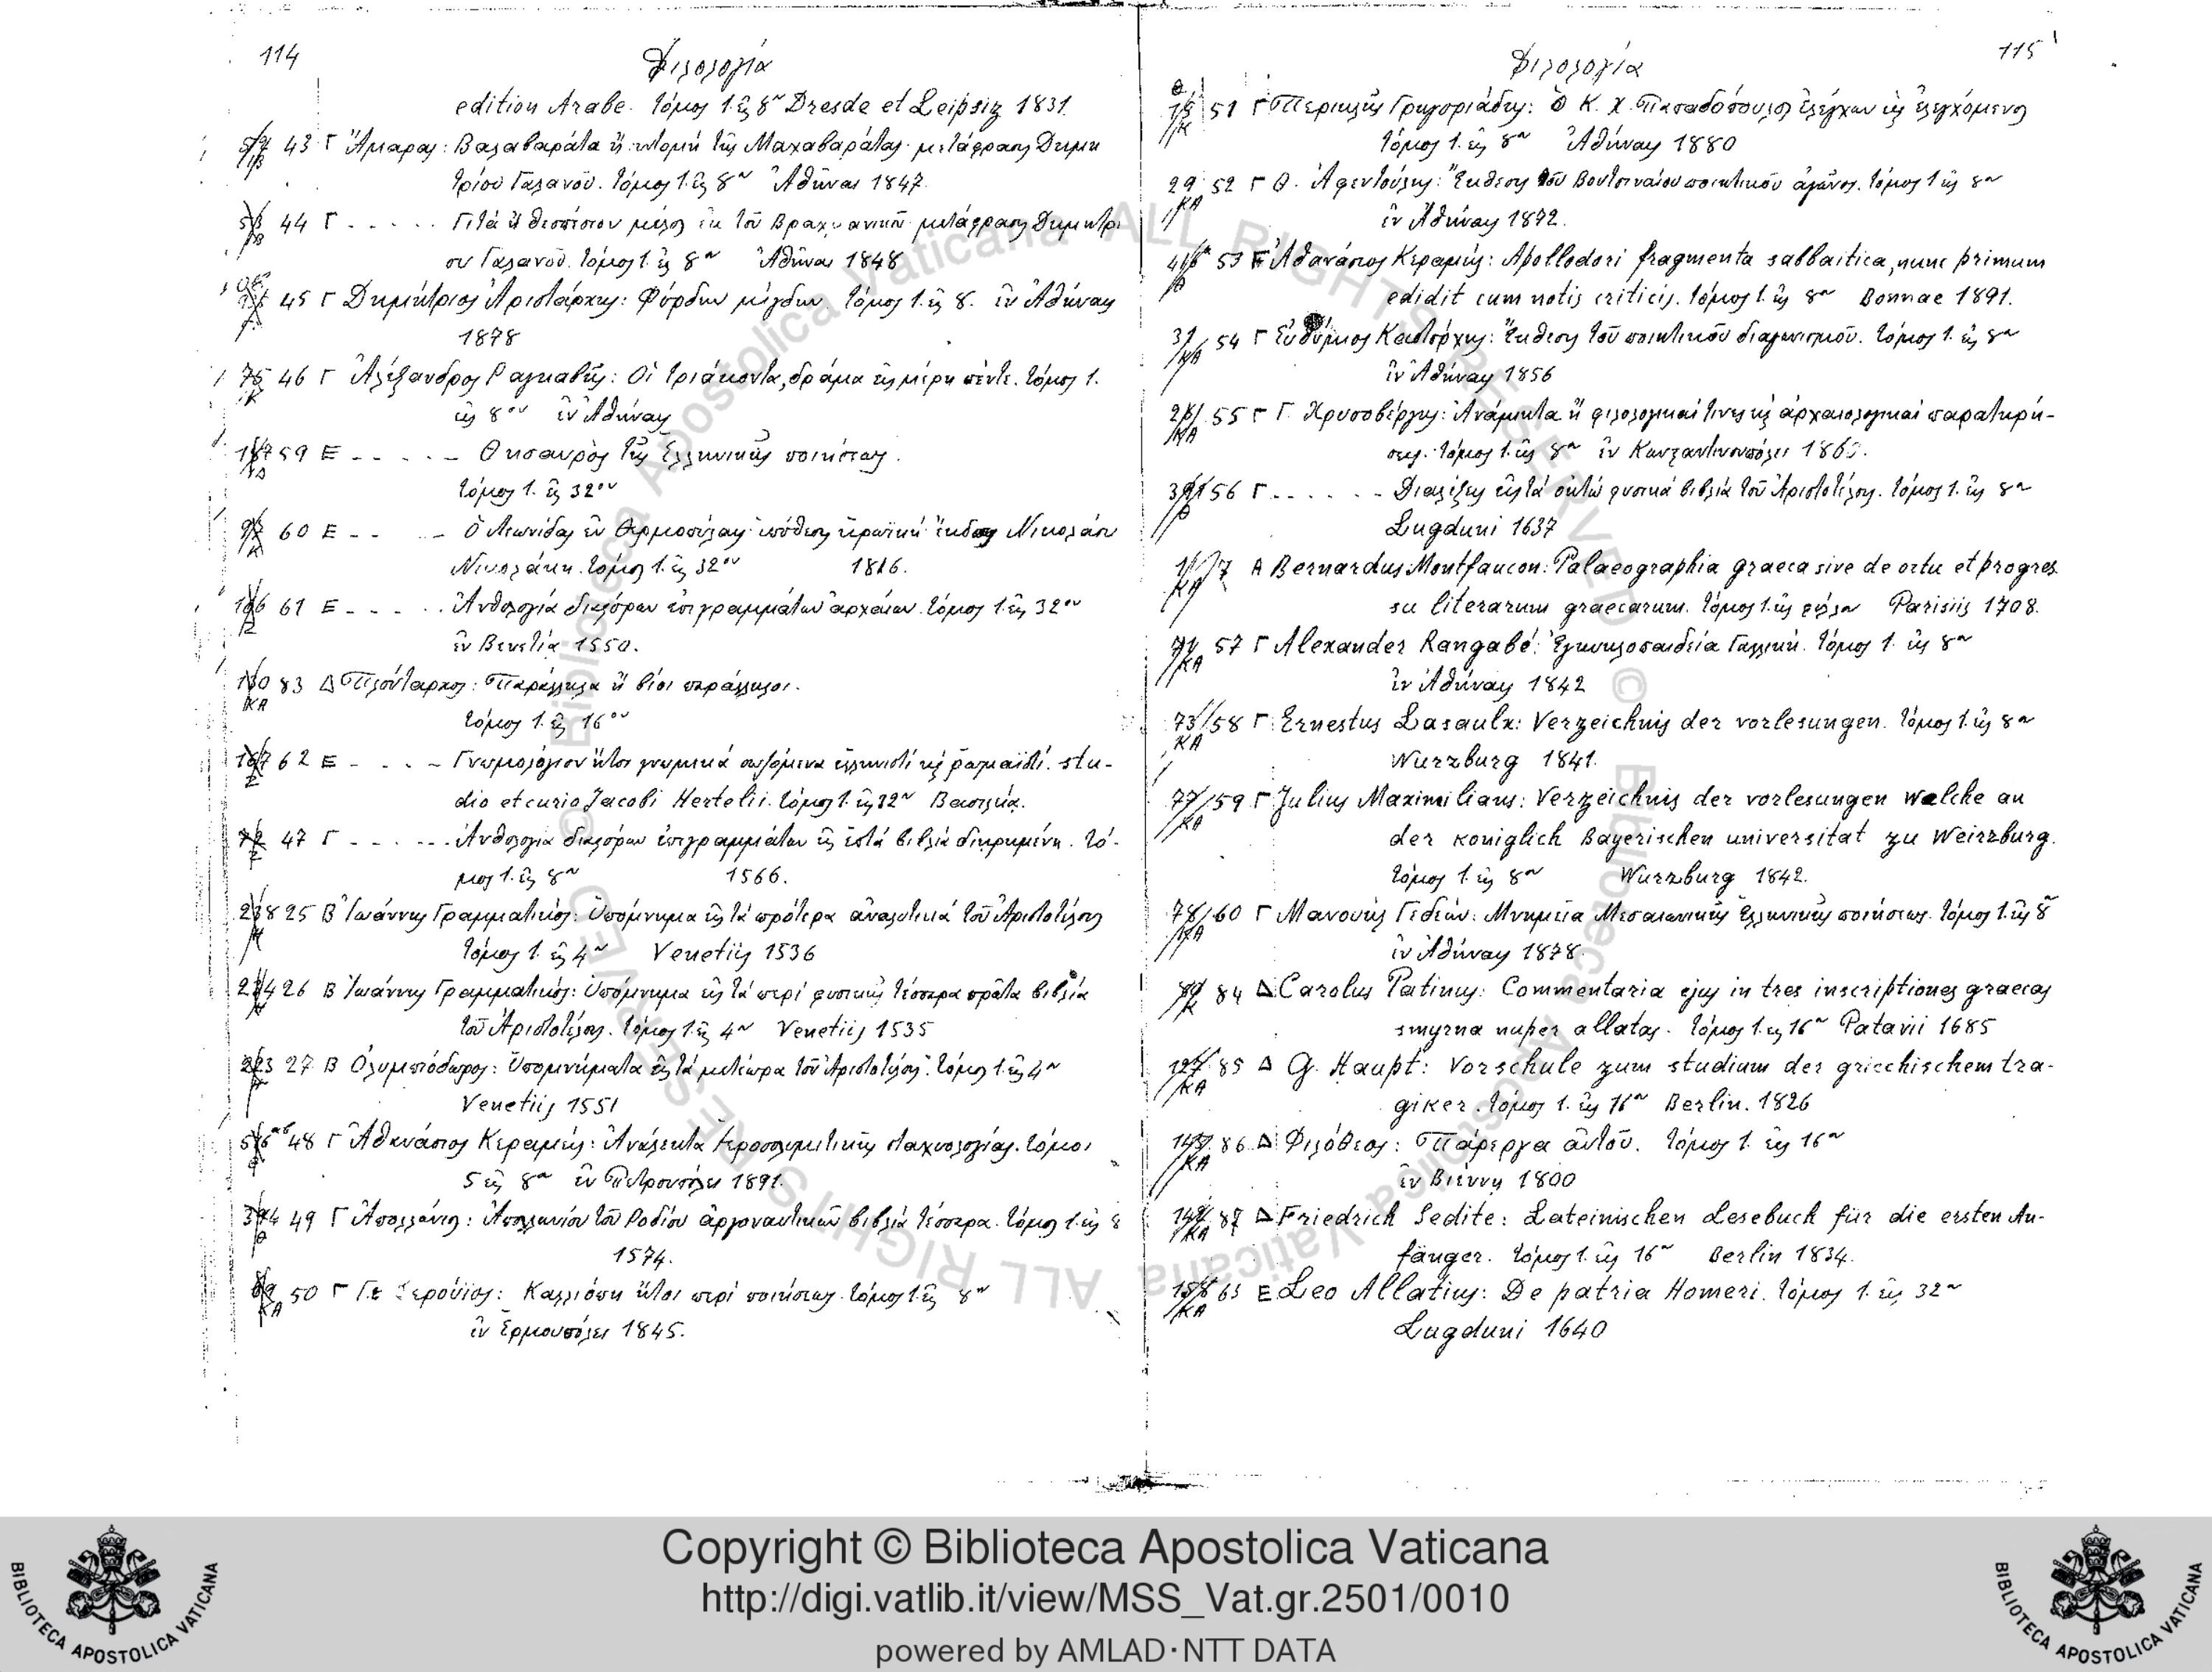 114
Φιλολογία
edition Arabe. τόμος 1. εἰς 8ον Dresde et Leipsig 1831
43 Γ Ἄμαρας: Βαλαβαράτα ἢ συντομὴ τῆς Μαχαβαράτας μετάφρασις Δημη
τρίου Γαλανοῦ. τόμος 1. εἰς 8ον Ἀθῆναι 1847.
44 Γ . . . . . Γιτὰ ἢ θεσπέσιον μέλος ἐκ τοῦ Βραχμανικοῦ μετάφρασις Δημητρί
ου Γαλανοῦ. τόμος 1. εἰς 8ον Ἀθῆναι 1848
45 Γ Δημήτριος Ἀριστάρχης: Φύρδην μίγδην. τόμος 1. εἰς 8. ἐν Ἀθήναις
1878
75 46 Γ Ἀλέξανδρος Ραγκαβῆς: Οἱ τριάκοντα, δρᾶμα εἰς μέρη πέντε. τόμος 1.
εἰς 8ον ἐν Ἀθήναις
59 Ε . . . . . Θησαυρὸς τῆς Ἑλληνικῆς ποιήσεως.
τόμος 1. εἰς 32ον
60 Ε . . . Ὁ Λεωνίδας ἐν Θερμοπύλαις ὑπόθεσις ἡρωϊκὴ ἔκδοσις Νικολάου
Νικολάκη. τόμος 1. εἰς 32ον 1816.
61 Ε . . . . . Ἀνθολογία διαφόρων ἐπιγραμμάτων ἀρχαίων. τόμος 1. εἰς 32ον
ἐν Βενετίᾳ 1550.
83 Δ Πλούταρχος: Παράλληλα ἢ βίοι παράλληλοι.
τόμος 1. εἰς 16ον
62 Ε . . . . Γνωμολόγιον ἤτοι γνωμικὰ σωζόμενα ἑλληνιστὶ καὶ ῥωμαϊστί. stu-
dio et curio Jacobi Hertelii. τόμος 1. εἰς 32ον Βασιλείᾳ.
47 Γ . . . . . . Ἀνθολογία διαφόρων ἐπιγραμμάτων εἰς ἑπτὰ βιβλία διῃρημένη. τό-
μος 1. εἰς 8ον 1566.
25 Β Ἰωάννης Γραμματικός: Ὑπόμνημα εἰς τὰ πρότερα ἀναλυτικὰ τοῦ Ἀριστοτέλους
τόμος 1. εἰς 4ον Venetiis 1536
26 Β Ἰωάννης Γραμματικός: Ὑπόμνημα εἰς τὰ περὶ φυσικῆς τέσσερα πρῶτα βιβλία
τοῦ Ἀριστοτέλους. τόμος 1. εἰς 4ον Venetiis 1535
27 Β Ὀλυμπιόδωρος: Ὑπομνήματα εἰς τὰ μετέωρα τοῦ Ἀριστοτέλους. τόμος 1. εἰς 4ον
Venetiis 1551
48 Γ Ἀθανάσιος Κεραμεύς: Ἀνάλεκτα Ἱεροσολυμιτικῆς σταχυολογίας. τόμοι
5 εἰς 8ον ἐν Πετρουπόλει 1891.
49 Γ Ἀπολλώνιος: Ἀπολλωνίου τοῦ Ροδίου ἀργοναυτικῶν βιβλία τέσσερα. τόμος 1. εἰς 8
1574.
50 Γ Γ. Σερούϊος: Καλλιόπη ἤτοι περὶ ποιήσεως. τόμος 1. εἰς 8ον
ἐν Ἑρμουπόλει 1845.
115
Φιλολογία
51 Γ Περικλῆς Γρηγοριάδης: Ὁ Κ. Χ. Παπαδόπουλος ἐλέγχων καὶ ἐλεγχόμενος
τόμος 1. εἰς 8ον Ἀθήναις 1880
29 52 Γ Θ. Ἀφεντούλης: Ἔκθεσις τοῦ Βουτσιναίου ποιητικοῦ ἀγῶνος. τόμος 1 εἰς 8ον
ἐν Ἀθήναις 1872.
53 Ε Ἀθανάσιος Κεραμεύς: Apollodori fragmenta sabbaitica, nunc primum
edidit cum notis criticis. τόμος 1. εἰς 8ον Bonnae 1891.
54 Γ Εὐθύμιος Καστόρχης: Ἔκθεσις τοῦ ποιητικοῦ διαγωνισμοῦ. τόμος 1. εἰς 8ον
ἐν Ἀθήναις 1856
55 Γ Γ. Χρυσοβέργης: Ἀνάμικτα ἢ φιλολογικαί τινες καὶ ἀρχαιολογικαὶ παρατηρή-
σεις. τόμος 1. εἰς 8ον ἐν Κωνσταντινουπόλει
56 Γ . . . . . . Διαλέξεις εἰς τὰ ὀκτὼ φυσικὰ βιβλία τοῦ Ἀριστοτέλους. τόμος 1. εἰς 8ον
Lugduni 1637
7 Α Bernardus Montfaucon: Palaeographia graeca sive de ortu et progres
su literarum graecarum. τόμος 1. εἰς φύλλον Parisiis 1708.
57 Γ Alexander Rangabé: Ἐγκυκλοπαιδεία Γαλλική. τόμος 1. εἰς 8ον
ἐν Ἀθήναις 1842
73 58 Γ Ernestus Lasaulx: Verzeichnis der vorlesungen. τόμος 1. εἰς 8ον
Wurzburg 1841.
77 59 Γ Julius Maximilians: Verzeichnis der vorlesungen welche an
der königlich Bayerischen universitat zu Weirzburg.
τόμος 1. εἰς 8ον Wurzburg 1842.
78 60 Γ Μανουὴλ Γεδεών: Μνημεῖα Μεσαιωνικῆς Ἑλληνικῆς ποιήσεως. τόμος 1. εἰς 8
ἐν Ἀθήναις 1878.
84 Δ Carolus Patinus: Commentaria ejus in tres inscriptiones graecas
smyrna nuper allatas. τόμος 1. εἰς 16ον Patavii 1685
85 Δ G. Haupt: Vorschule zum studium der griechischem tra-
giker. τόμος 1. εἰς 16ον Berlin. 1826
86 Δ Φιλόθεος: Πάρεργα αὐτοῦ. τόμος 1. εἰς 16ον
ἐν Βιέννῃ 1800
87 Δ Friedrich Sedite: Lateinischen Lesebuch für die ersten An-
fänger. τόμος 1. εἰς 16ον Berlin 1834.
63 Ε Leo Allatius: De patria Homeri. τόμος 1. εἰς 32ον
Lugduni 1640
Copyright © Biblioteca Apostolica Vaticana
http://digi.vatlib.it/view/MSS_Vat.gr.2501/0010
powered by AMLAD·NTT DATA
BIBLIOTECA APOSTOLICA VATICANA
BIBLIOTECA APOSTOLICA VATICANA